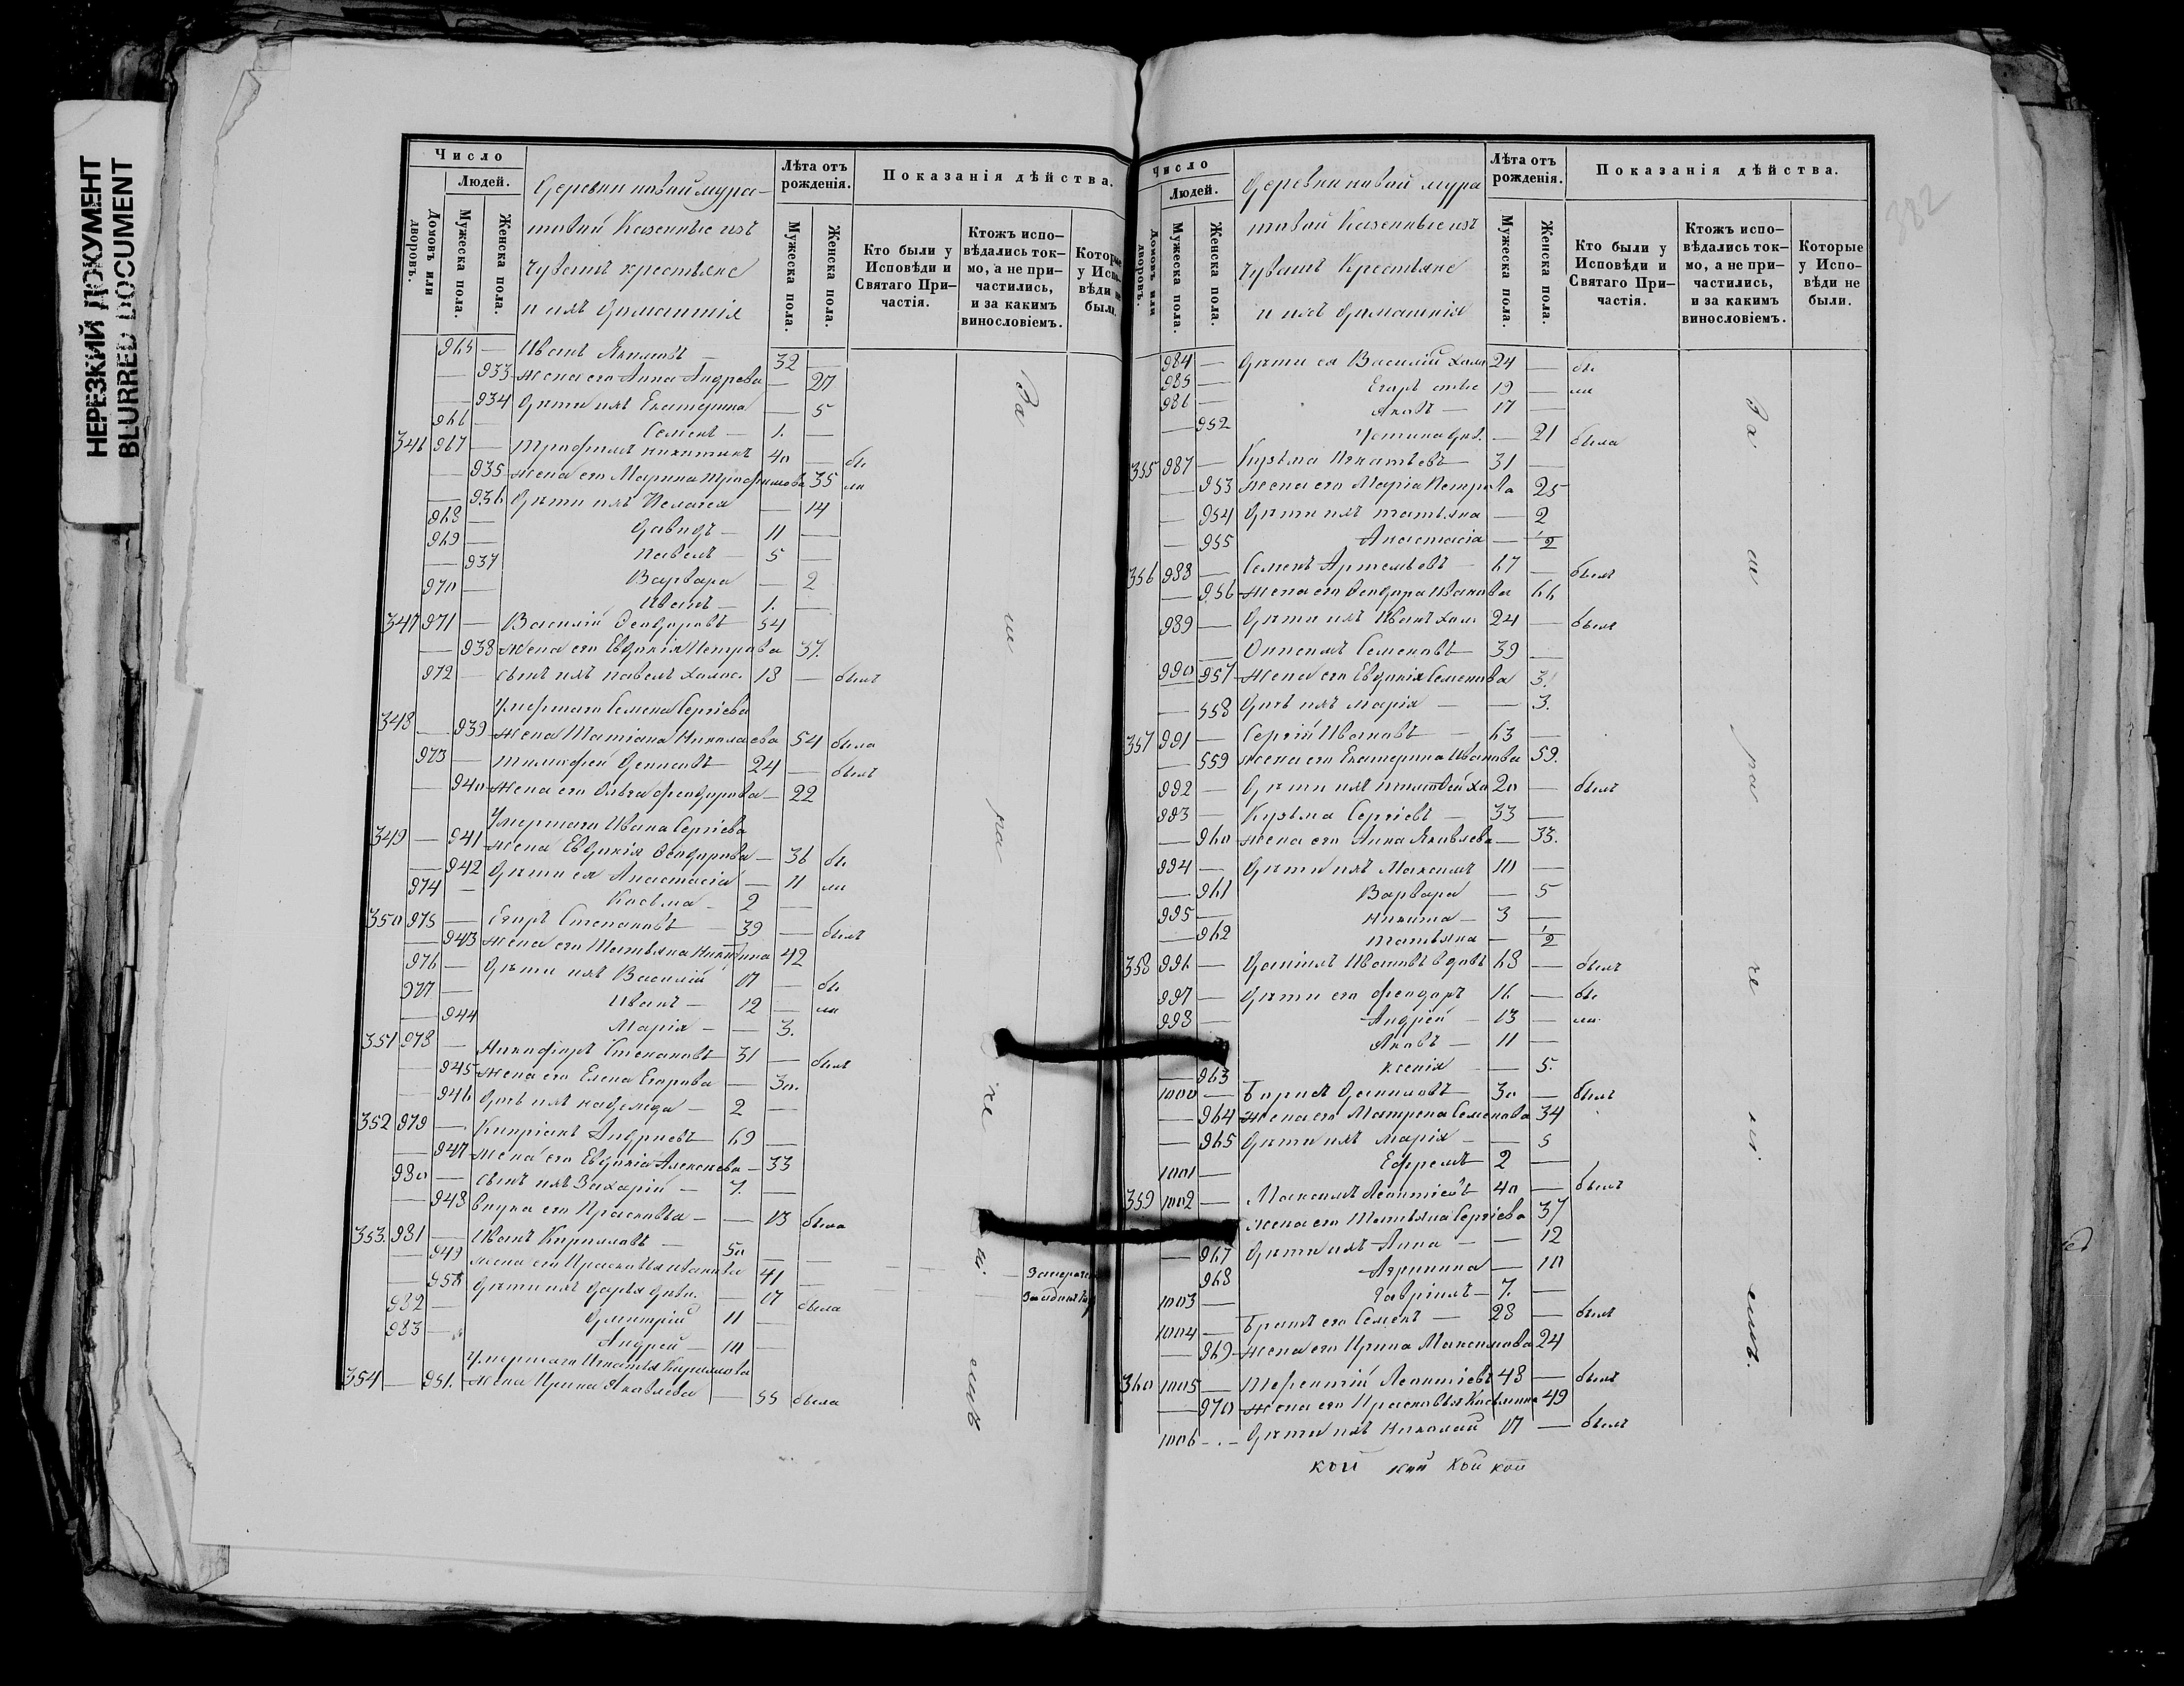 НЕРЕЗКИЙ ДОКУМЕНТ
BLURRED DOCUMENT
Число
Людей.
Домовъ или дворовъ.
Мужеска пола.
Женска пола.
Деревни новой мура-
товой Казенные изъ
чувашъ крестьяне
и ихъ домашнія
Лѣта отъ рожденія.
Мужеска пола.
Женска пола.
Показанія дѣйства.
Кто были у Исповѣди и Святаго При-частія.
Ктожъ испо-вѣдались ток-мо, а не при-частились, и за какимъ винословіемъ.
Которые у Испо-вѣди не были.
965 — Иванъ — 32 —
— 933 жена его Анна Андрева — 27
— 934 Дѣти ихъ Екатерина — 5
966 — Семенъ — 1. —
346 967 — Трофимъ Никитинъ 40 — бы
— 935 жена его Марина Трофимова 35 ли
— 936 Дѣти ихъ Пелагея — 14
968 — Давидъ — 11 —
969 — Павелъ — 5 —
— 937 Варвара — 2
970 — Иванъ — 1. —
347 971 — Василій Феодоровъ 54
— 938 жена его Евдокія Петрова 37.
972 — сынъ ихъ павелъ холос. 18 — былъ
Умершаго Семена Сергіева
348 — 939 жена Татіана Николаева 54 была
973 — Тимофей Денисовъ 24 — былъ
— 940 жена его Ольга Феодорова — 22
Умершаго Ивана Сергіева
349 — 941 жена Евдокія Феодорова — 36 бы
— 942 Дѣти ея Анастасія — 11 ли
974 — Косьма — 2 —
350 975 — Егоръ Степановъ — 39 — былъ
— 943 жена его Татьяна Никитина 42
976 — Дѣти ихъ Василій 17 — бы
977 — Иванъ — 12 — ли
— 944 Марія — — 3.
351 978 — Никифоръ Степановъ 31 — былъ
— 945 жена его Елена Егорова — 30.
— 946 Дочь ихъ надежда — 2 —
352 979 — Кипріанъ Андреевъ 69 —
— 947 жена его Евдокія Алексеева — 33
980 — сынъ ихъ Захарій — 7. —
— 948 внука его Прасковья — — 13 была
353. 981 — Иванъ Кириловъ — 50 —
— 949 жена его Прасковья Иванова 41 —
— 950 Дѣти ихъ Дарья дѣви. — 17 была
982 — Дмитрій 11 —
983 — Андрей — 10 —
Умершаго Игнатья Кирилова
354 — 951. жена Ирина Яковлева — 55 была
Число
Людей.
Домовъ или дворовъ.
Мужеска пола.
Женска пола.
Деревни новой мура
товой Казенные изъ
чувашъ Крестьяне
и ихъ домашнія
Лѣта отъ рожденія.
Мужеска пола.
Женска пола.
Показанія дѣйства.
Кто были у Исповѣди и Святаго При-частія.
Ктожъ испо-вѣдались ток-мо, а не при-частились, и за какимъ винословіемъ.
Которые у Испо-вѣди не были.
382
984 — Дѣти ея Василій холо 24 — бы
985 — Егоръ 19 — ли
986 — Яковъ — 17 —
— 952 Устина дѣв. — 21 была
355 987 — Кузьма Игнатьевъ 31 —
— 953 жена его Марія Петрова 25
— 954 Дѣти ихъ татьяна — 2
— 955 Анастасія — 1/2
356 988 — Семенъ Артемьевъ — 67 — былъ
— 956 жена его Феодора Иванова 66
989 — Дѣти ихъ Иванъ холо 24 — былъ
— Онисимъ Семеновъ 39 —
990 957 жена его Евдокія Семенова 3
— 558 Дочь ихъ Марія — — 3.
357 991 — Сергій Ивановъ — 63 —
— 559 жена его Екатерина Иванова 59.
992 — Дѣти ихъ тимофей хо 20 — былъ
993 — Кузьма Сергіевъ — 33 —
— 960 жена его Анна Яковлева — 33.
994 — Дѣти ихъ Максимъ 10 —
— 961 Варвара — 5
995 — Никита — 3 —
— 962 татьяна — 1/2
358 996 — Даніилъ Ивановъ вдовъ 68 — былъ
997 — Дѣти его Феодоръ 16 — бы
998 — Андрей — 13 — ли.
Яковъ — 11 —
— 963 Ксенія — 5.
1000 — Борисъ Даниловъ — 30 — былъ
— 964 жена его Матрена Семенова 34
— 965 Дѣти ихъ Марія — — 5
1001 — Ефремъ 2 —
359 1002 — Максимъ Леонтіевъ 40 — былъ
жена его Татьяна Сергіева 37
— 967 Дѣти ихъ Анна — — 12
968 Агрипина — 10
1003 — Гавріилъ — 7. —
1004 — Братъ его Семенъ — 28 — былъ
— 969 жена его Ирина Максимова 24
360 1005 — Терентій Леонтіевъ 48 — былъ
— 970 жена его Прасковья Косьмина 49
1006 — Дѣти ихъ Николай 17 — былъ
кой кой кой кой